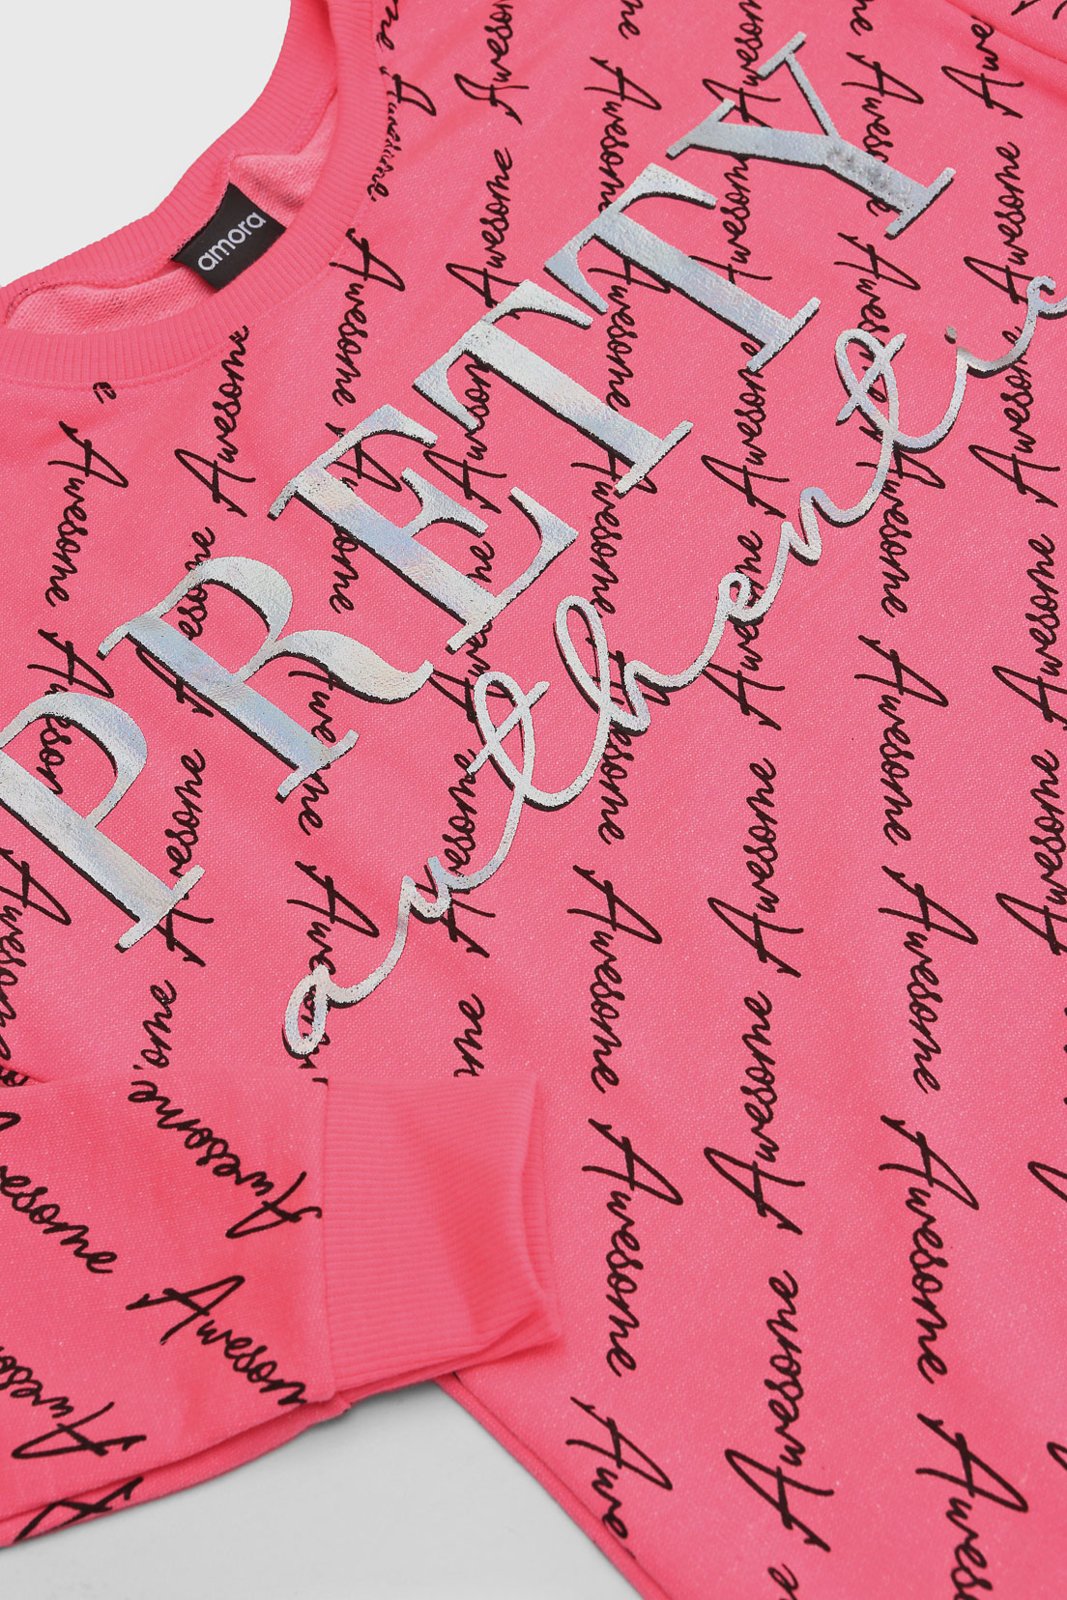 amora
PRETTY
authentic
Awesome Awesome Awesome Awesome
Awesome Awesome Awesome Awesome
Awesome Awesome Awesome Awesome
Awesome Awesome Awesome Awesome
Awesome Awesome Awesome Awesome